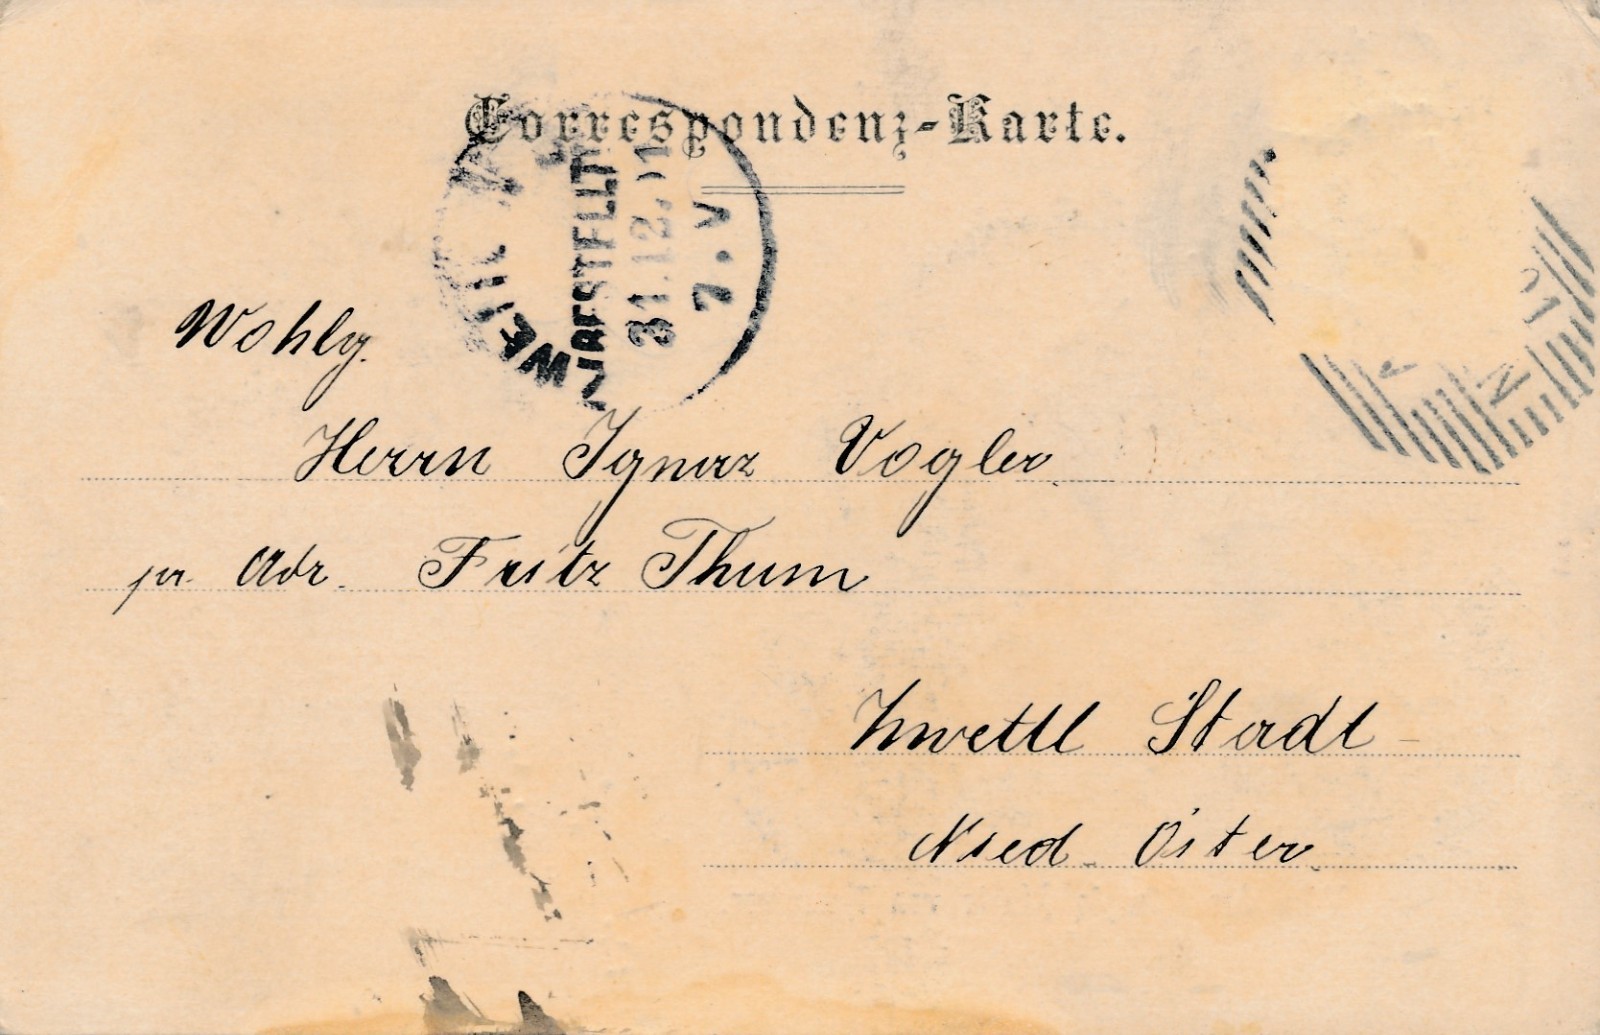 Correspondenz-Karte.
BESTELLT
31.12.01
7.V
Wohlg.
Herrn Ignaz Vogler
pr. Adr. Fritz Thum
Zwettl Stadt
Nied. Öster